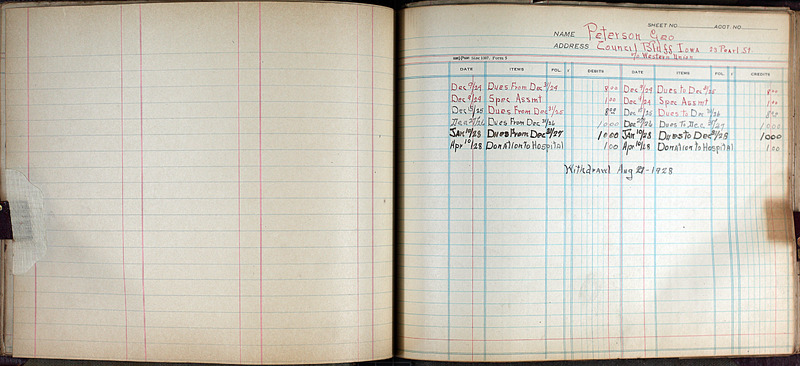 SHEET NO. ACCT. NO.
NAME Peterson Geo
ADDRESS Council Bluffs Iowa 23 Pearl St.
c/o Western Union
Form 5
DATE ITEMS FOL. DEBITS DATE ITEMS FOL. CREDITS
Dec 9/24 Dues From Dec 31/24 8 00 Dec 9/24 Dues to Dec 31/25 8 00
Dec 9/24 Spec Assmt 1 00 Dec 9/24 Spec Assmt 1 00
Dec 15/25 Dues From Dec 31/25 8 00 Dec 15/25 Dues to Dec 31/26 8 00
Dec /26 Dues From Dec 31/26 10 00 Dec /26 Dues To Dec 31/27 10 00
Jan 10/28 Dues From Dec 31/27 10 00 Jan 10/28 Dues to Dec 31/28 10 00
Apr 10/28 Donation to Hospital 1 00 Apr 10/28 Donation to Hospital 1 00
Withdrawl Aug 21-1928